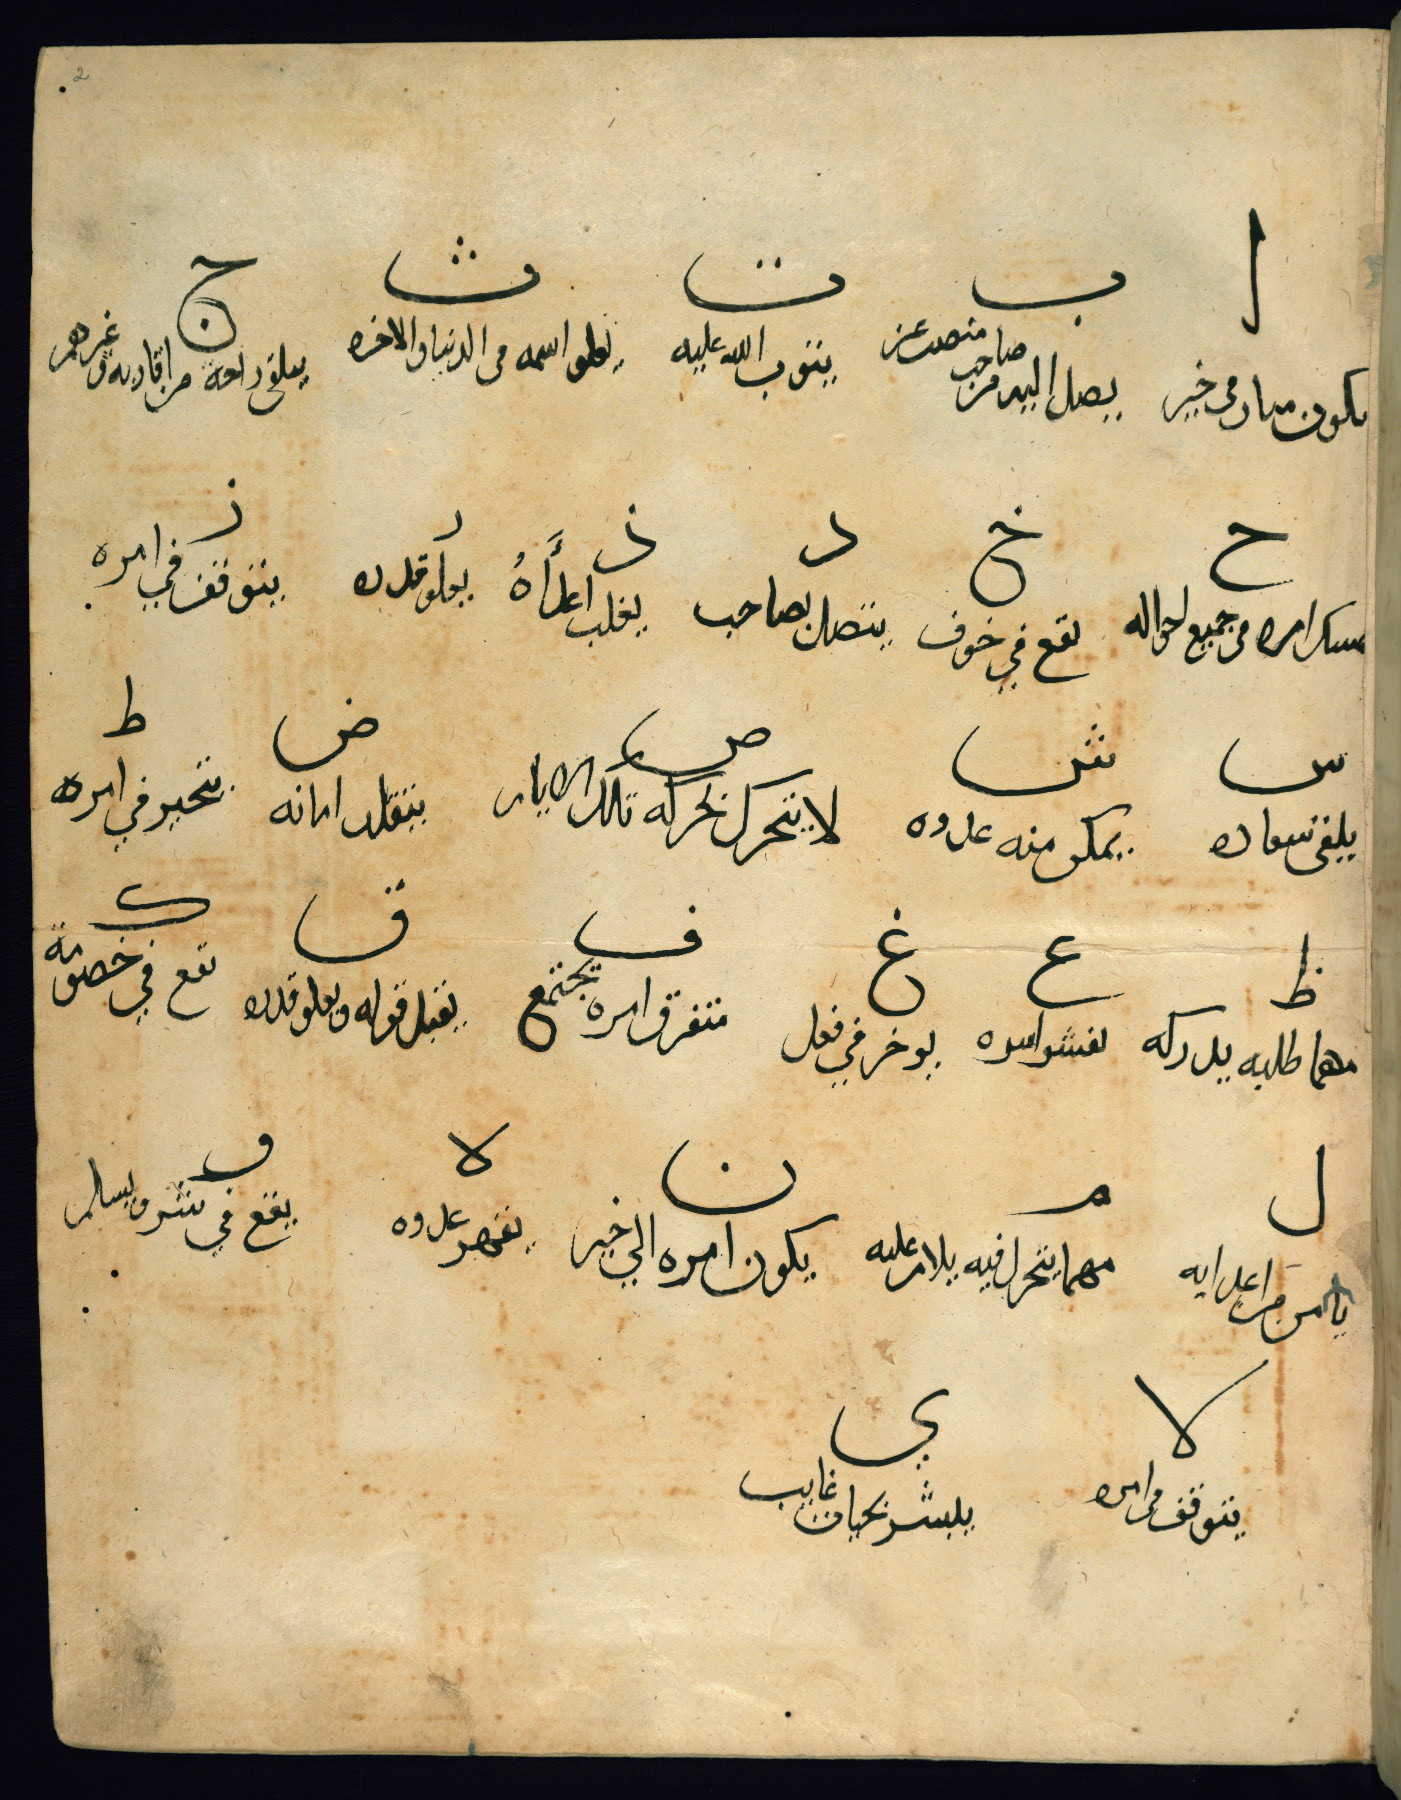 ا ب ت ث ج
يكون مبارك في خير
يصل اليه من صاحب منصب عز
يتوب الله عليه
يعلو اسمه في الدنيا والاخره
يلقى راحة من اقاربه وغيرهم
ح خ د ذ ر ز
امره في جميع احواله
يقع في خوف
يتصل بصاحب
يغلب اعداه
يعلو قدره
يتوقف في امره
س ش ص ض ط
يلقى سعاده
يمكن منه عدوه
لا يتحرك بحركه تلك الايام
يتقلد امانه
يتحير في امره
ظ ع غ ف ق ك
مهما طلبه يدركه
يفشو سره
يوخر في فعل
متفرق امره يجتمع
يقبل قوله ويعلو قدره
يقع في خصومة
ل م ن ه و
يامن من اعدايه
مهما يتحرك فيه يلام عليه
يكون امره الى خير
يقهر عدوه
يقع في شر ويسلم
لا ي
يتوقف في امره
يبشر بحياة غايب